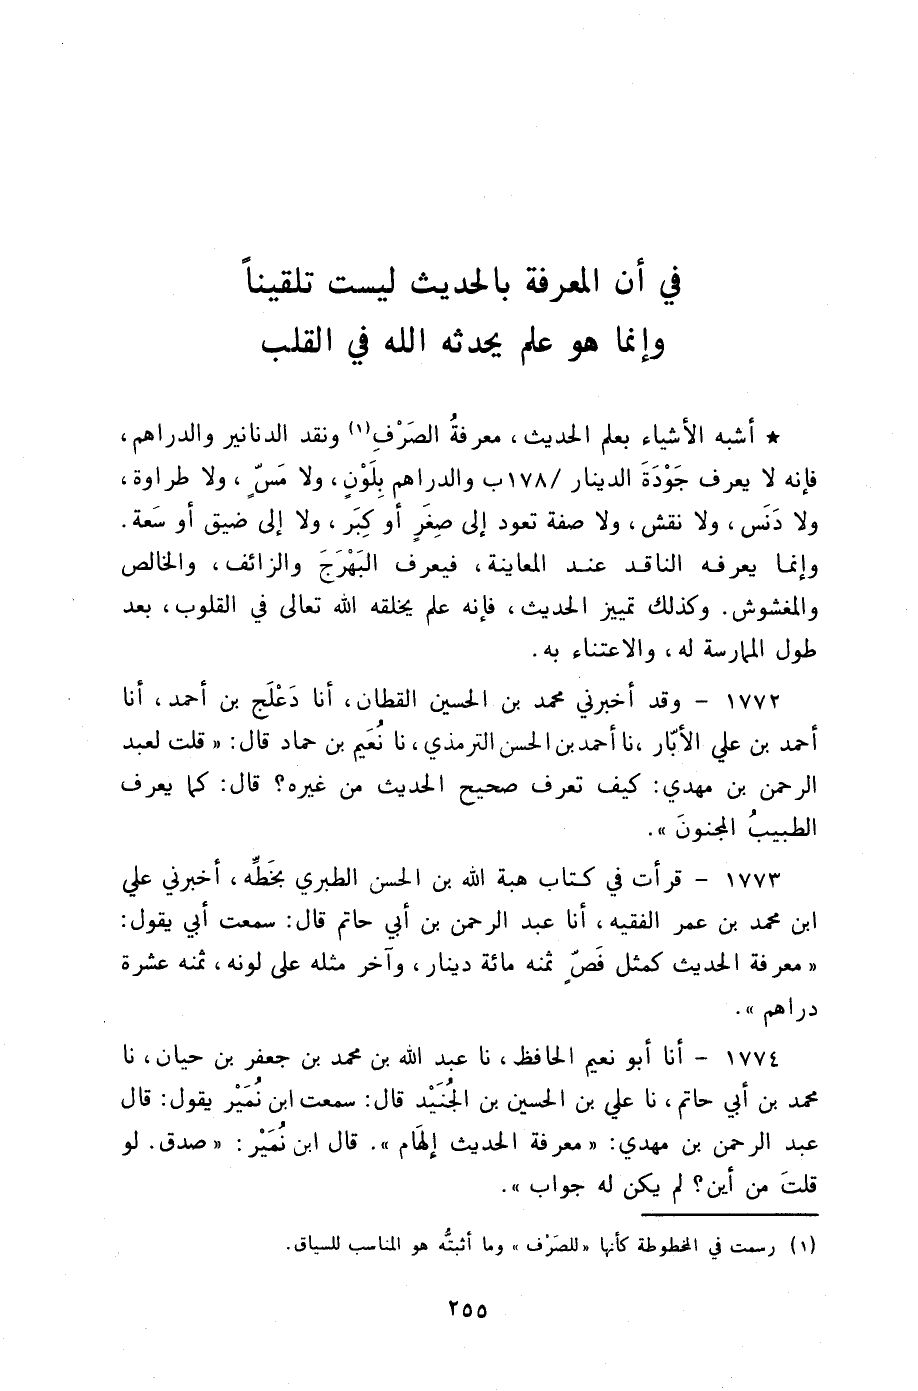 في أن المعرفة بالحديث ليست تلقيناً
وإنما هو علم يحدثه الله في القلب
★ أشبه الأشياء بعلم الحديث، معرفةُ الصَرْفِ(١) ونقد الدنانير والدراهم،
فإنه لا يعرف جَوْدَةَ الدينار /١٧٨ب والدراهم بِلَوْنٍ، ولا مَسٍّ، ولا طراوة،
ولا دَنَس، ولا نقش، ولا صفة تعود إلى صِغَرٍ أو كِبَر، ولا إلى ضيق أو سَعة.
وإنما يعرفه الناقد عند المعاينة، فيعرف البَهْرَجَ والزائف، والخالص
والمغشوش. وكذلك تمييز الحديث، فإنه علم يخلقه الله تعالى في القلوب، بعد
طول الممارسة له، والاعتناء به.
١٧٧٢ - وقد أخبرني محمد بن الحسين القطان، أنا دَعْلَج بن أحمد، أنا
أحمد بن علي الأبّار، نا أحمد بن الحسن الترمذي، نا نُعَيم بن حماد قال: « قلت لعبد
الرحمن بن مهدي: كيف تعرف صحيح الحديث من غيره؟ قال: كما يعرف
الطبيبُ المجنونَ ».
١٧٧٣ - قرأت في كتاب هبة الله بن الحسن الطبري بخَطِّه، أخبرني علي
ابن محمد بن عمر الفقيه، أنا عبد الرحمن بن أبي حاتم قال: سمعت أبي يقول:
« معرفة الحديث كمثل فَصٍّ ثمنه مائة دينار، وآخر مثله على لونه، ثمنه عشرة
دراهم ».
١٧٧٤ - أنا أبو نعيم الحافظ، نا عبد الله بن محمد بن جعفر بن حيان، نا
محمد بن أبي حاتم، نا علي بن الحسين بن الجُنَيْد قال: سمعت ابن نُمَيْر يقول: قال
عبد الرحمن بن مهدي: « معرفة الحديث إلهَام ». قال ابن نُمَيْر: « صدق. لو
قلتَ من أين؟ لم يكن له جواب ».
(١) رسمت في المخطوطة كأنها «للصَرْف» وما أثبتُّه هو المناسب للسياق.
٢٥٥